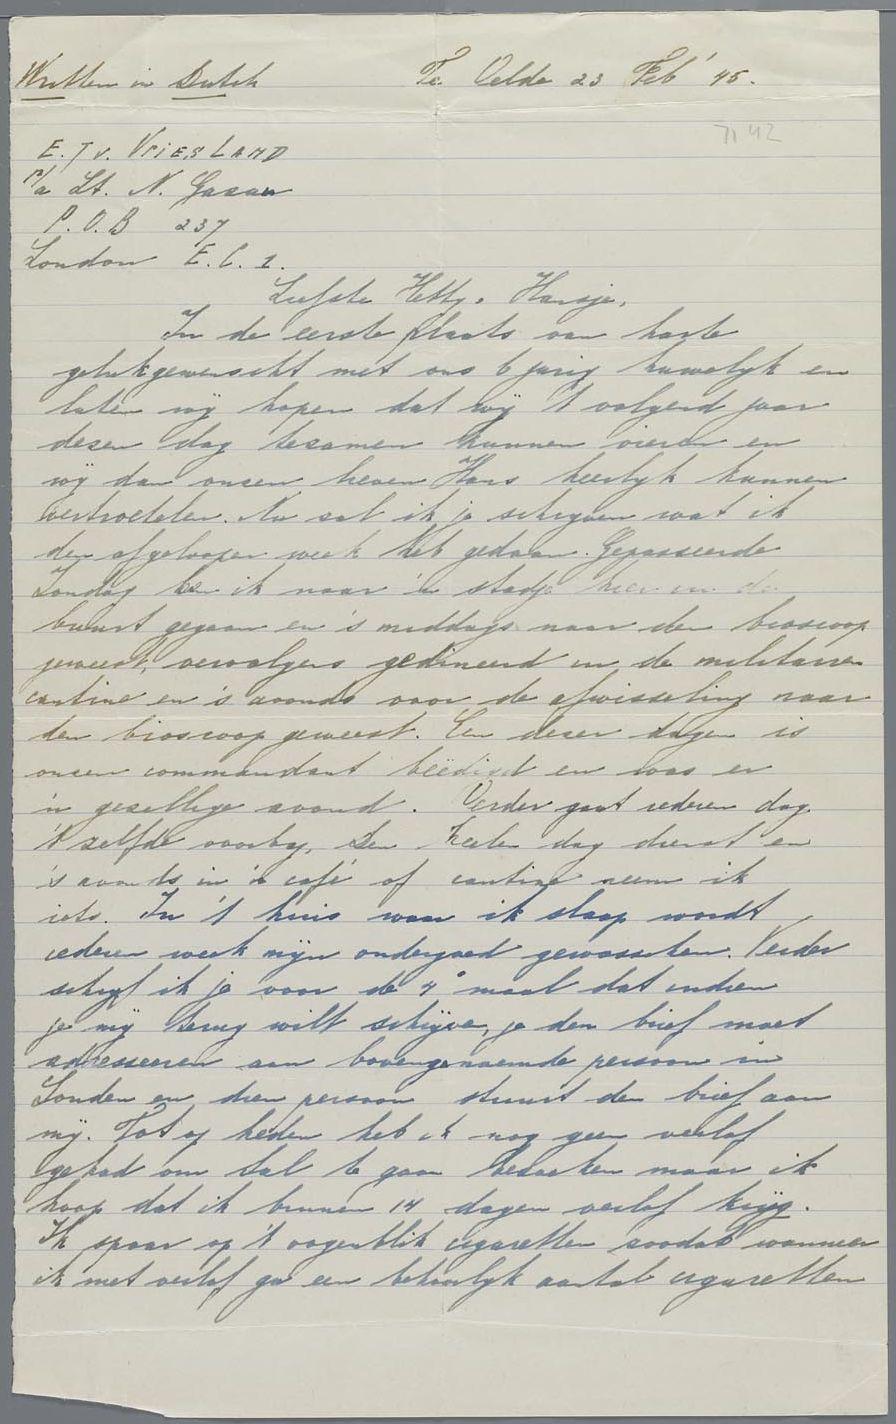 Written in Dutch Te Velde 23 Feb' 45.
7142
E. J v. VRIESLAND
p/a Lt. N. Gasan
P.O.B 237
London E.C. 1.
Liefste Hetty, Hansje,
In de eerste plaats van harte
gelukgewenscht met ons 6 jarig huwelyk en
laten wij hopen dat wij 't volgend jaar
dezen dag tesamen kunnen vieren en
wij dan onzen lieven Hans heerlyk kunnen
vertroetelen. Nu zal ik je schrijven wat ik
den afgeloopen week heb gedaan. Gepasseerde
Zondag ben ik naar 'n stadje hier in de
buurt gegaan en 's middags naar den bioscoop
geweest, vervolgens gedineerd in de militaire
cantine en 's avonds voor de afwisseling naar
den bioscoop geweest. Een dezer dagen is
onzen commandant beëdigd en was er
'n gezellige avond. Verder gaat iederen dag
't zelfde voorby, den heelen dag dienst en
's avonds in 'n café of cantine neem ik
iets. In 't huis waar ik slaap wordt
iederen week mijn ondergoed gewasschen. Verder
schryf ik je voor de 4e maal dat indien
je mij terug wilt schrijven, je den brief moet
adresseeren aan bovengenoemde persoon in
Londen en dien persoon stuurt den brief aan
mij. Tot op heden heb ik nog geen verlof
gehad om Sal te gaan bezoeken maar ik
hoop dat ik binnen 14 dagen verlof krijg.
Ik spaar op 't oogenblik cigaretten zoodat wanneer
ik met verlof ga een behoorlyk aantal cigaretten